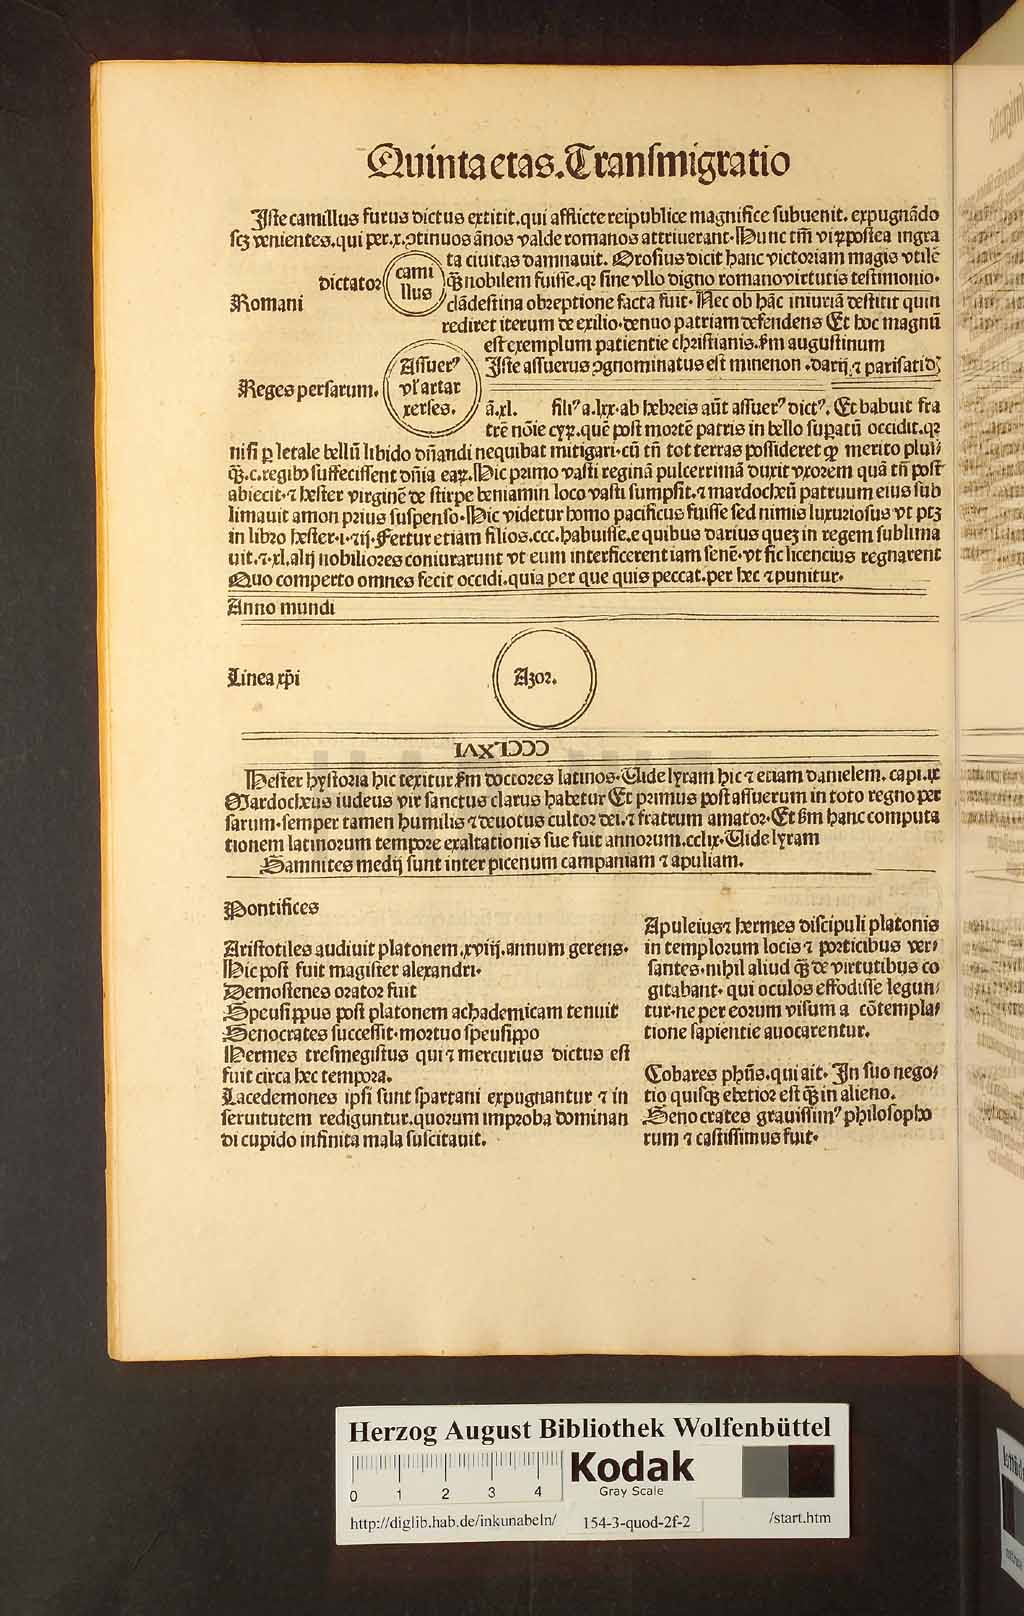 Quinta etas. Transmigratio
Iste camillus furus dictus extitit. qui afflicte reipublice magnifice subuenit. expugnādo
scꝫ venientes. qui per .x. ↄtinuos ānos valde romanos attriuerant. Hunc tm̄ viꝝ postea ingra
ta ciuitas damnauit. Orosius dicit hanc victoriam magis vtilē
dictator
cami
llus
q̄ꝫ nobilem fuisse. qꝛ sine vllo digno romano virtutis testimonio.
Romani
clādestina obreptione facta fuit. Nec ob hāc iniuriā destitit quin
rediret iterum de exilio. denuo patriam defendens Et hoc magnū
est exemplum patientie christianis. ẜm augustinum
Reges persarum.
Assuerꝰ
vl̓ artar
xerses.
Iste assuerus ↄgnominatus est minenon . darij ⁊ parisatidꝭ
ā. xl. filiꝰ a. lxx. ab hebreis aūt assuerꝰ dictꝰ. Et habuit fra
trē nōie cyꝝ. quē post mortē patris in bello suꝑatū occidit. qꝛ
nisi ꝑ letale bellū libido dn̄andi nequibat mitigari. cū tn̄ tot terras possideret ꝙ merito plus
q̄ꝫ .c. regibꝫ suffecissent dn̄ia eaꝝ. Hic primo vasti reginā pulcerrimā duxit vxorem quā tn̄ post
abiecit. ⁊ hester virginē de stirpe beniamin loco vasti sumpsit. ⁊ mardocheū patruum eius sub
limauit amon prius suspenso. Hic videtur homo pacificus fuisse sed nimis luxuriosus vt ptꝫ
in libro hester .i. ⁊ ij. Fertur etiam filios .ccc. habuisse. e quibus darius quēꝫ in regem sublima
uit. ⁊ .xl. alij nobiliores coniurarunt vt eum interficerent iam senē. vt sic licencius regnarent
Quo comperto omnes fecit occidi. quia per que quis peccat. per hec ⁊ punitur.
Anno mundi
Linea xp̄i
Azor.
CCCLXVI
Hester hystoria hic texitur ẜm doctores latinos. Uide lyram hic ⁊ etiam danielem. capi. ix
Mardocheus iudeus vir sanctus clarus habetur Et primus post assuerum in toto regno per
sarum. semper tamen humilis ⁊ deuotus cultor dei. ⁊ fratrum amator. Et ẜm hanc computa
tionem latinorum tempore exaltationis sue fuit annorum .cclix. Uide lyram
Samnites medij sunt inter picenum campaniam ⁊ apuliam.
Pontifices
Aristotiles audiuit platonem .xviij. annum gerens.
Hic post fuit magister alexandri.
Demostenes orator fuit
Speusippus post platonem achademicam tenuit
Senocrates successit. mortuo speusippo
Hermes tresmegistus qui ⁊ mercurius dictus est
fuit circa hec tempora.
Lacedemones ipsi sunt spartani expugnantur ⁊ in
seruitutem rediguntur. quorum improba dominan
di cupido infinita mala suscitauit.
Apuleius ⁊ hermes discipuli platonis
in templorum locis ⁊ porticibus ver
santes. nihil aliud q̄ꝫ de virtutibus co
gitabant. qui oculos effodisse legun
tur. ne per eorum visum a cōtempla
tione sapientie auocarentur.
Cobares ph̄us. qui ait. In suo nego
tio quisqꝫ ebetior est q̄ꝫ in alieno.
Senocrates grauissimꝰ philosopho
rum ⁊ castissimus fuit.
Herzog August Bibliothek Wolfenbüttel
0 1 2 3 4
Kodak
Gray Scale
http://diglib.hab.de/inkunabeln/ 154-3-quod-2f-2 /start.htm